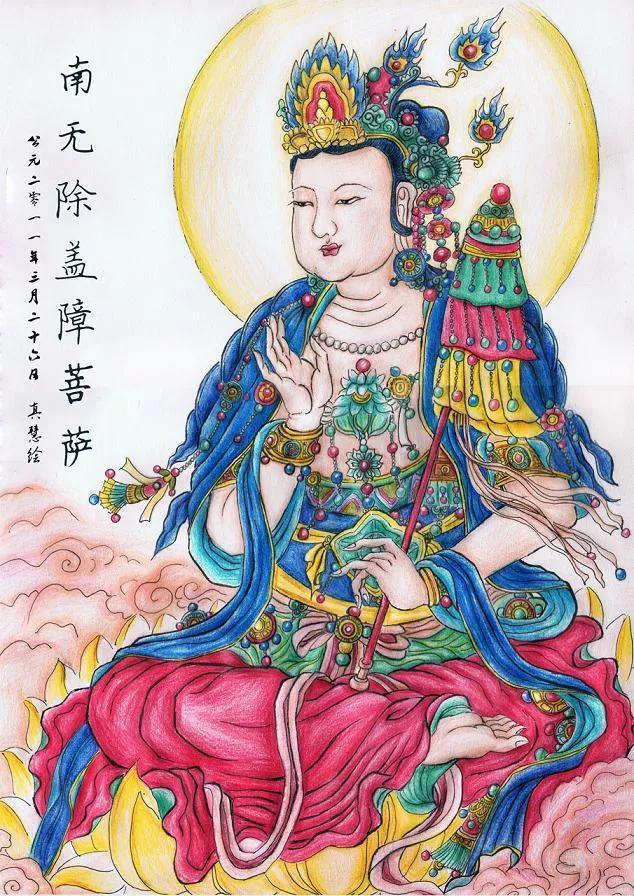 南无除盖障菩萨
公元二零一一年三月二十六日 真慧绘